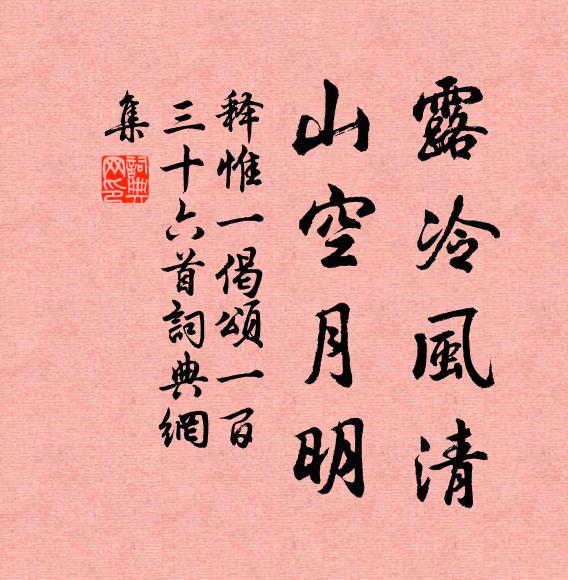 露冷風清
山空月明
释惟一偈頌一百
三十六首詞典網
集
詞典
网印